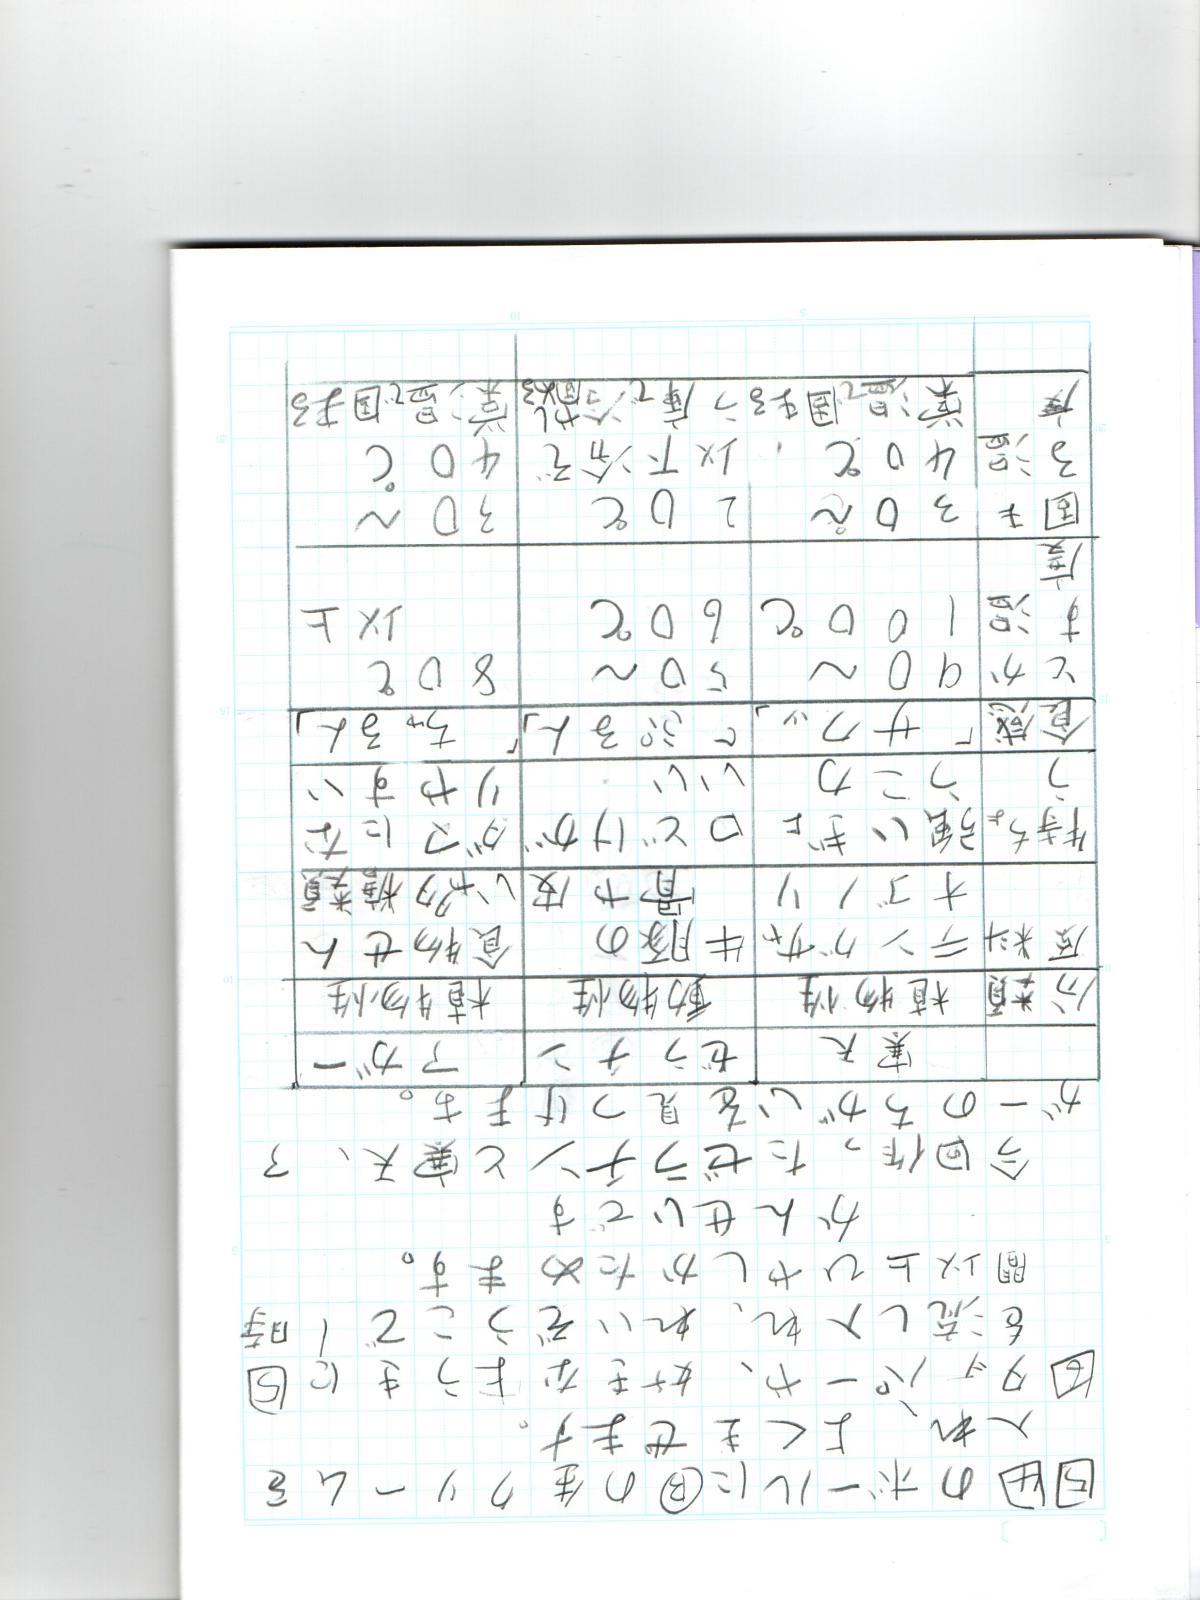 5 4のボールにⒷの生クリームを
入れ、よくまぜます。
6 タッパーや、好きなようきに5
を流し入れ、れいぞうこで1時
間以上ひやしかためます。
かんせいです
今回作ったゼラチンと寒天、ア
ガーのちがいを見つけます。
寒天 ゼラチン アガー
分類 植物性 動物性 植物性
原料 テングサや 牛豚の 食物せん
オゴノリ 骨や皮 いや多糖類
特ちょ 強いぎょ 口どけが ダマにな
う うこ力 いい りやすい
食感 「サクッ」 「ぷるん」 「ちゅるん」
とか 90〜 50〜 80℃
す温 100℃ 60℃ 以上
度
固ま 30〜 20℃ 30〜
る温 40℃, 以下冷ぞ 40℃
度 常温で固まる う庫で冷やし固める 常温で固まる